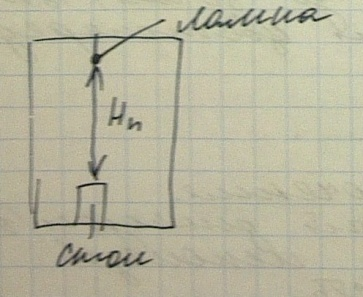 лампа
Hп
стол